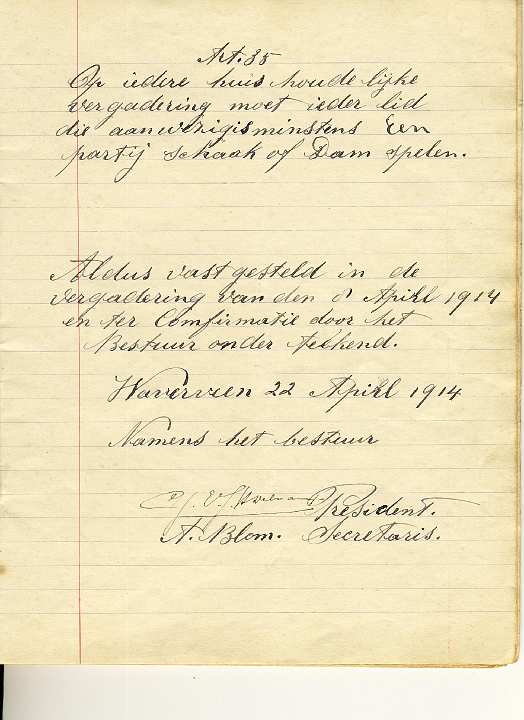 Art. 35
Op iedere huis houde lijke
vergadering moet ieder lid
die aanwezigisminstens Een
partij schaak of Dam spelen.
Aldus vast gesteld in de
vergadering van den 8 April 1914
en ter Comfirmatie door het
Bestuur onder teekend.
Waverveen 22 April 1914
Namens het bestuur
President.
A. Blom. Secretaris.